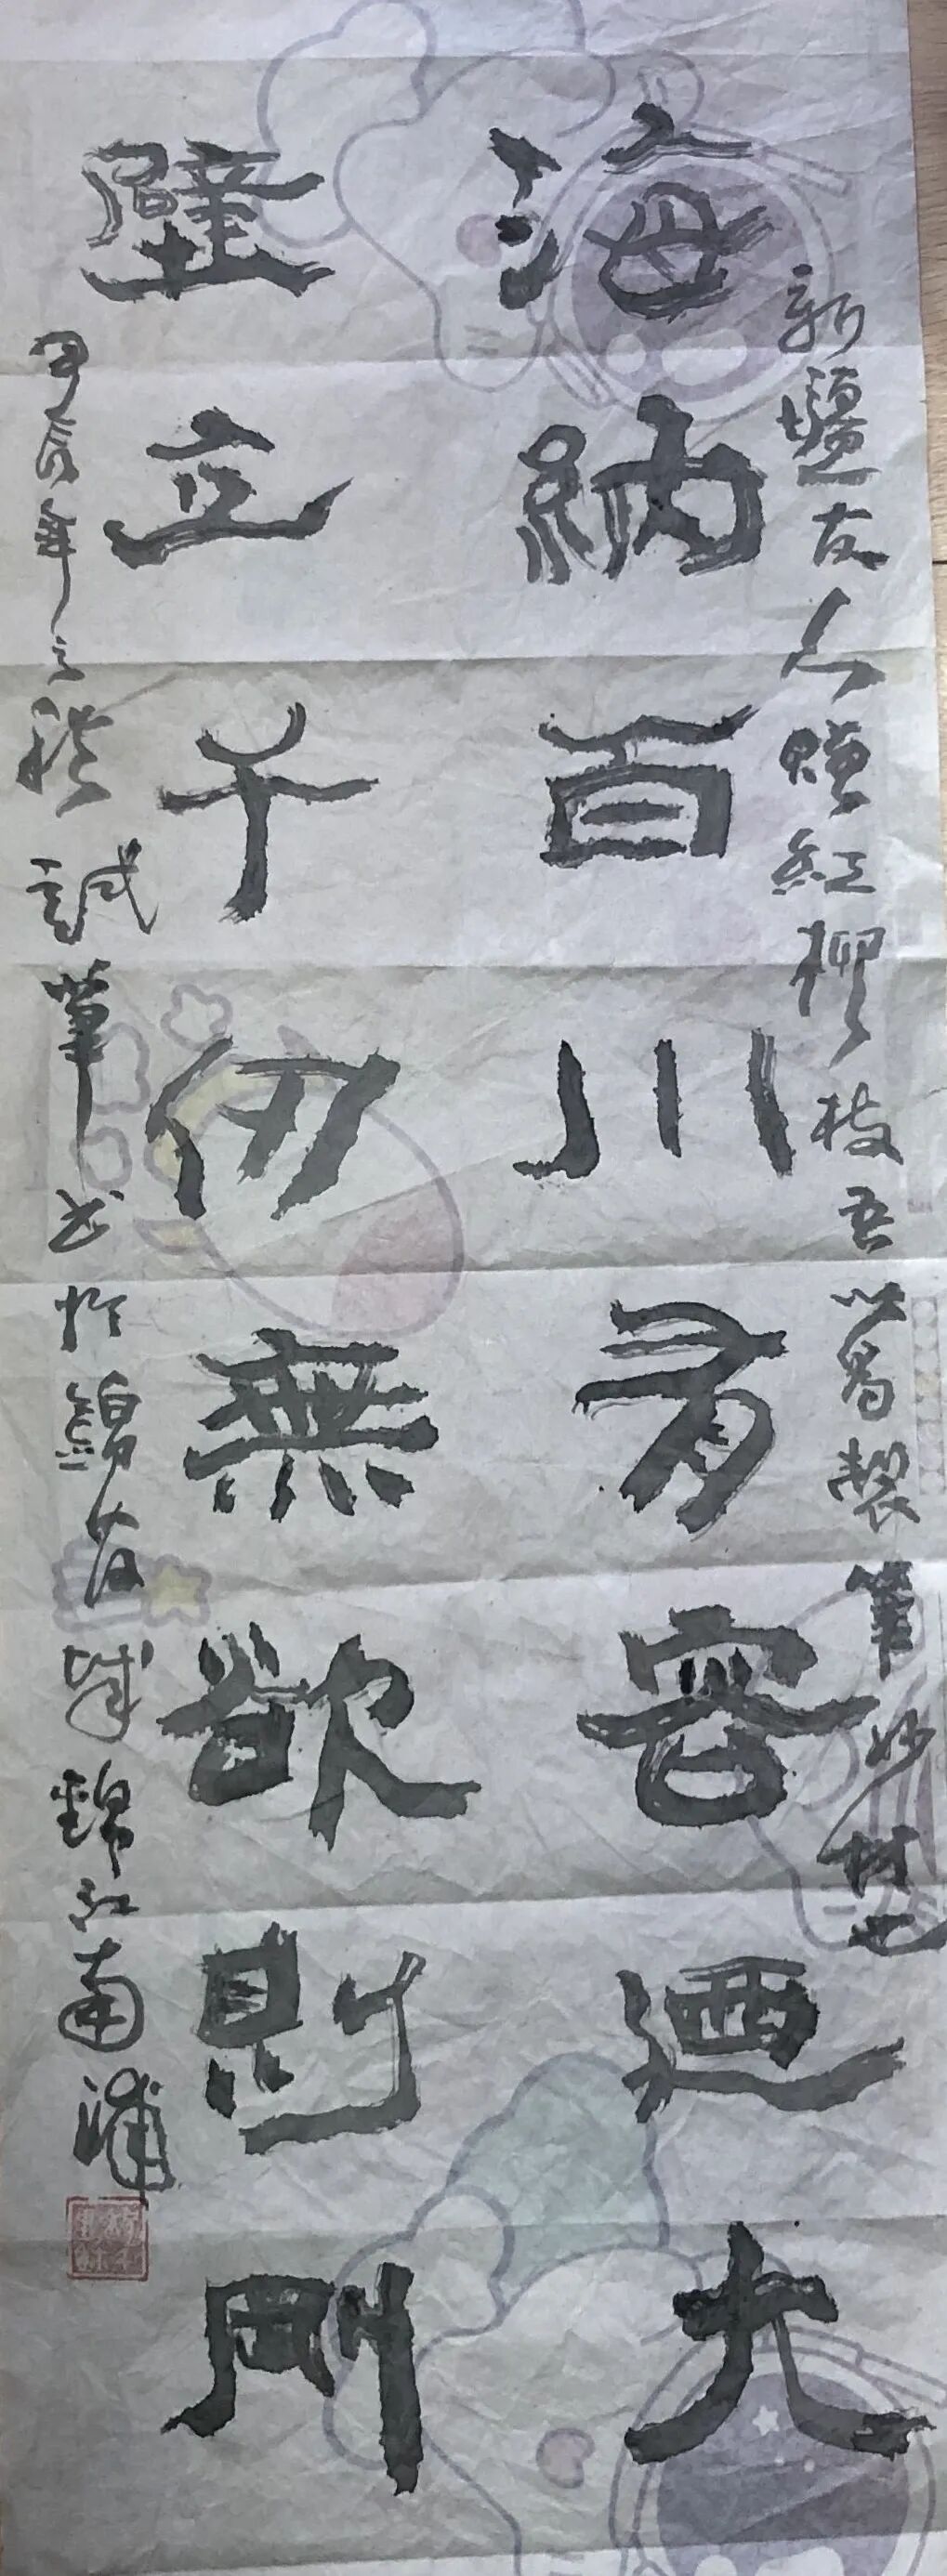 新疆友人贈紅柳枝吾以為製筆妙材也
海納百川有容迺大
壁立千仞無欲則剛
甲辰年之 試筆书於 城錦江南浦